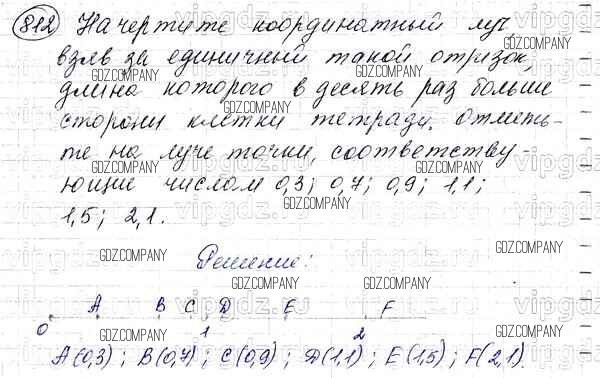 812 Начертите координатный луч,
взяв за единичный такой отрезок,
длина которого в десять раз больше
стороны клетки тетради. Отметь-
те на луче точки, соответству-
ющие числам 0,3; 0,7; 0,9; 1,1;
1,5; 2,1.
Решение:
A B C D E F
0 1 2
A(0,3); B(0,7); C(0,9); D(1,1); E(1,5); F(2,1).
vipgdz.ru
GDZ.COMPANY